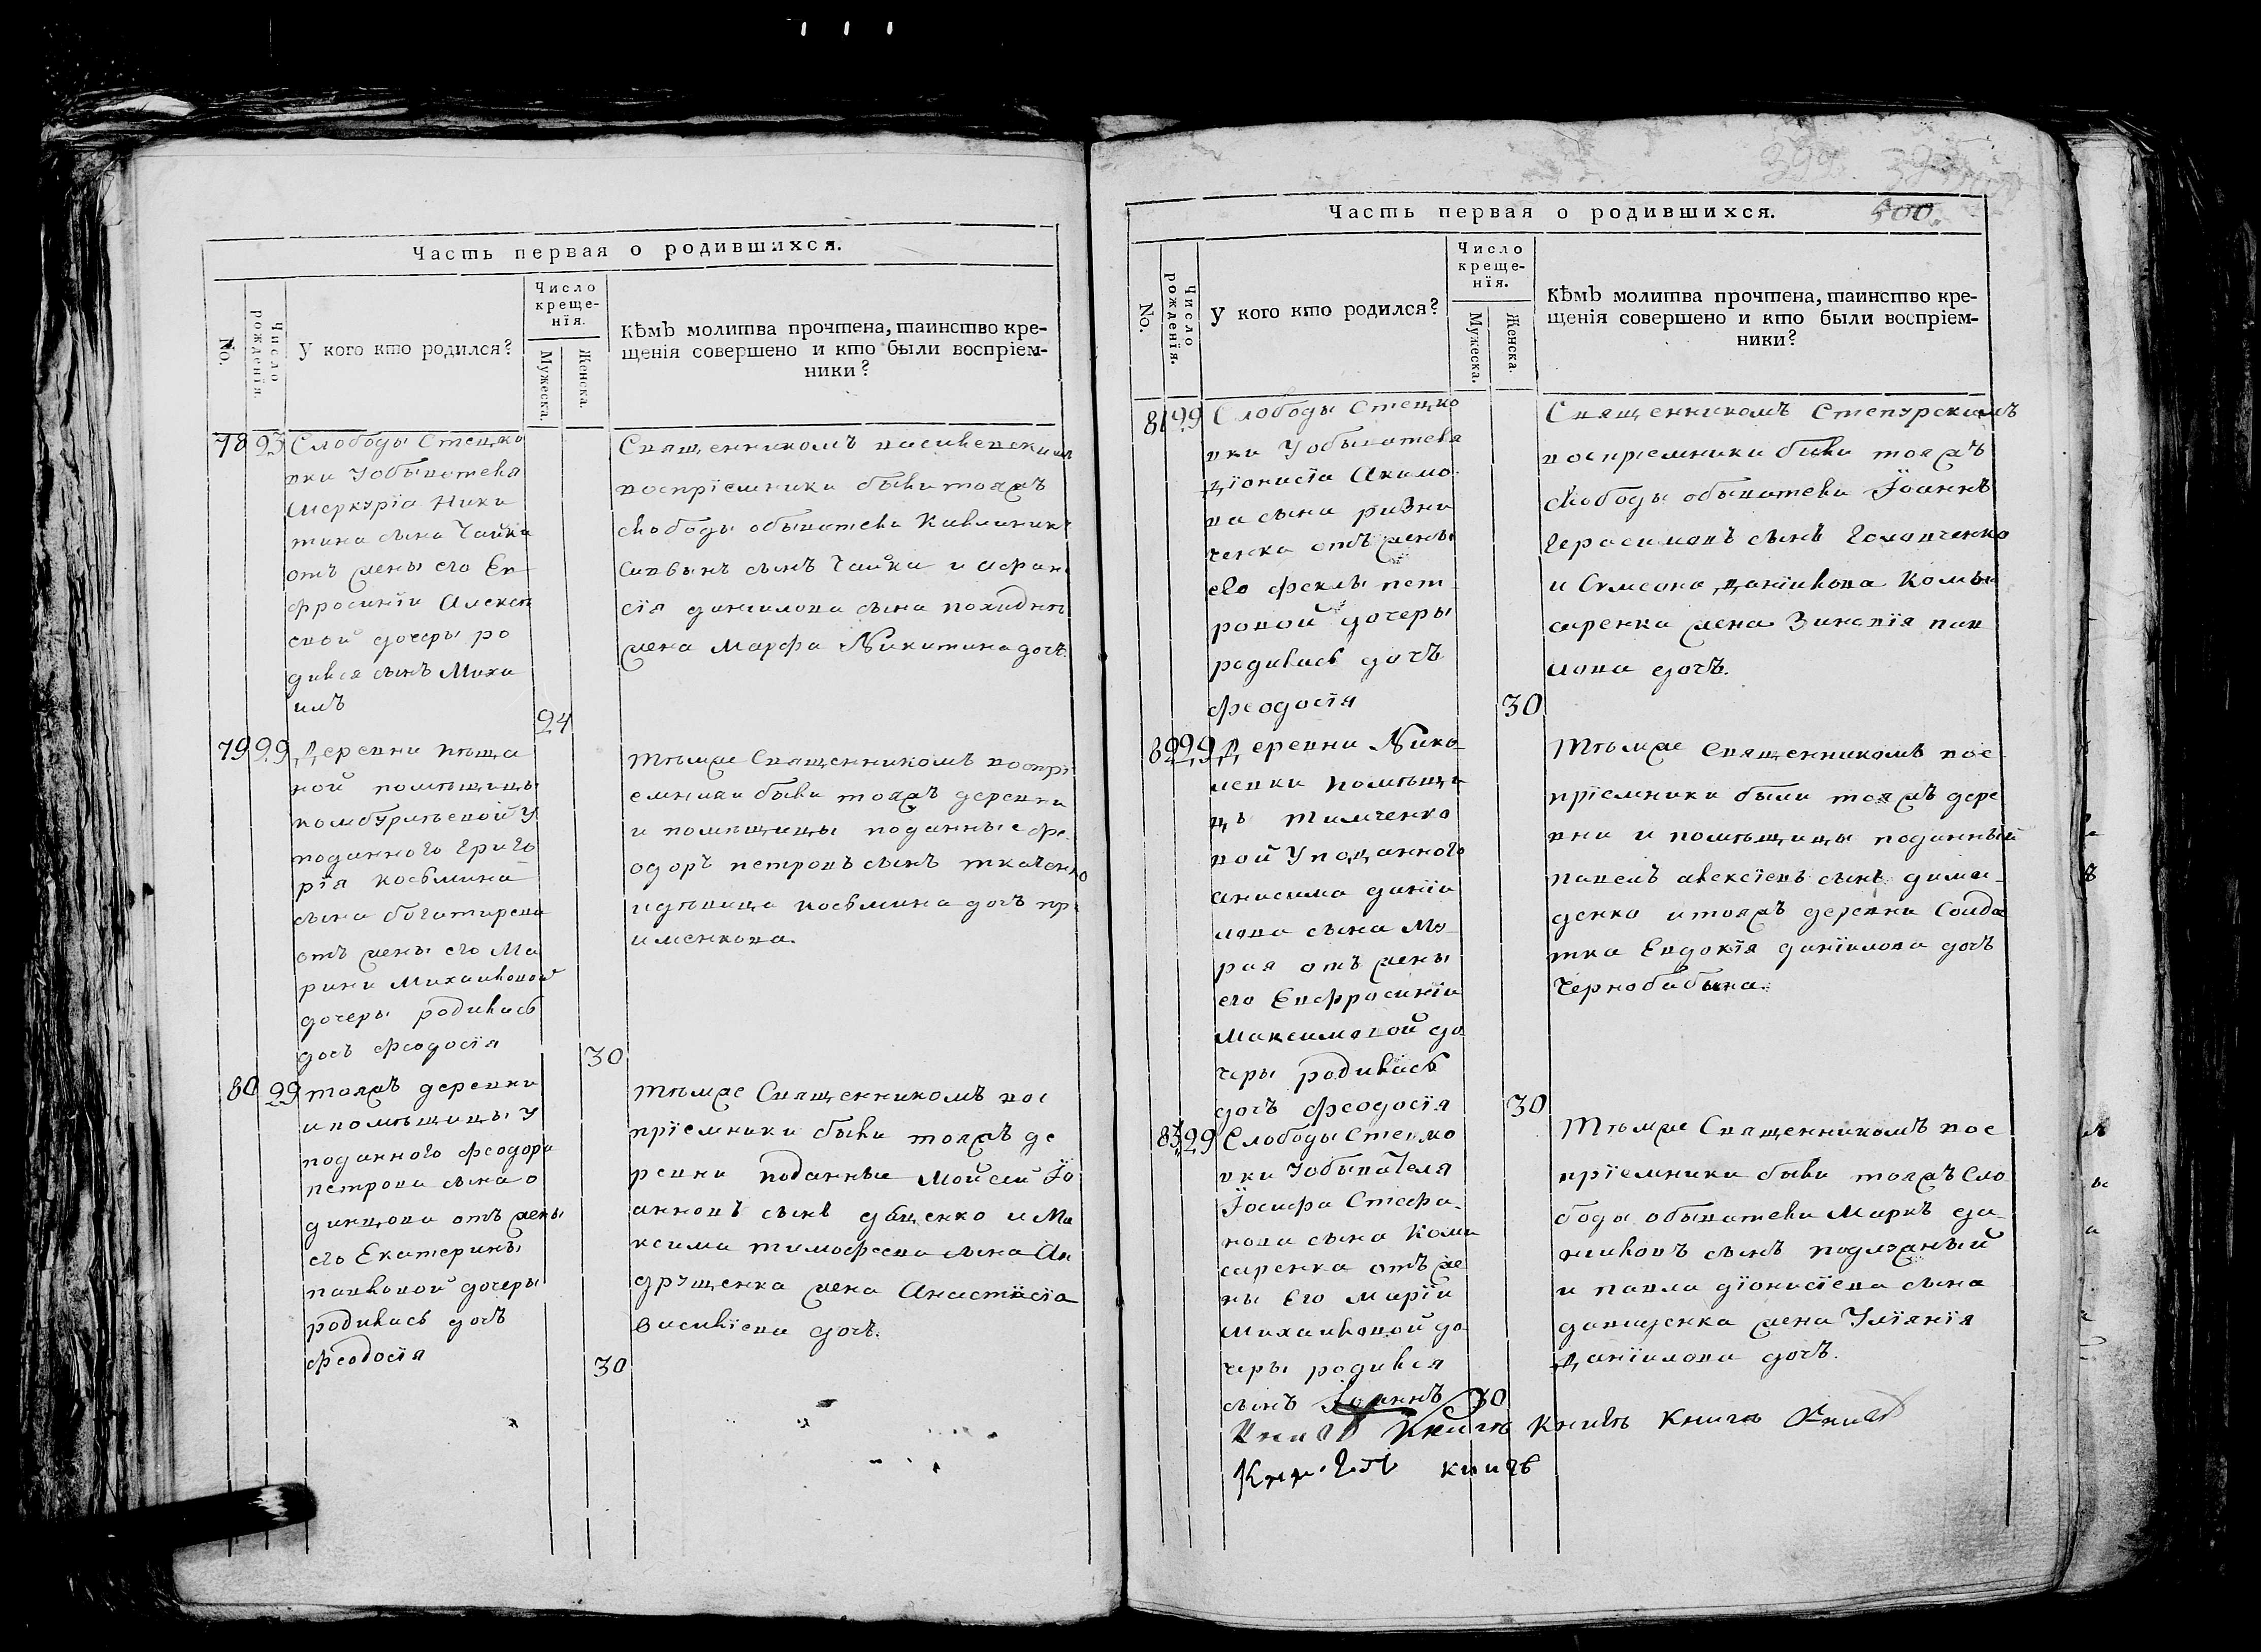 Часть первая о родившихся.
No.
Число рожденїя
У кого кто родился?
Число
креще-
нїя.
Мужеска.
Женска.
Кѣмъ молитва прочтена, таинство кре-
щенїя совершено и кто были воспрїем-
ники?
78 23 Слободы Стецко
вки У обывателя
Меркурїа Ники
тина сына Чайки
отъ жены его Ев
фросинїи Алексѣ
евой дочеры ро
дился сынъ Миха
илъ
24
Священникомъ василевскимъ
воспрїемники были тояжъ
слободы обыватели
Саввынъ сынъ Чайка и Афана
сїя данїилова сына
жена Марфа Никитина дочь
79 29 Деревни пѣща
ной помѣщицы
У
поданного Григо
рїя косьмина
сына богатирева
отъ жены его Ма
рини Михаиловой
дочеры родилась
дочь феодосїя
30
тѣмже Священникомъ воспрї
емники были тояжъ деревни
и помѣщицы поданные фе
одоръ петровъ сынъ ткаченко
идѣвица косьмина дочь
80 29 тояжъ деревни
и помѣщицы У
поданного феодора
петрова сына о
динцова отъ жены
его Екатерины
павловой дочеры
родилась дочь
феодосїя
30
тѣмже Священникомъ вос
прїемники были тояжъ де
ревни поданные Мойсей Їо
анновъ сынъ и Ма
ксима тимофеева сына Ан
друщенка жена Анастасїа
Василїева дочь.
Часть первая о родившихся.
399
500.
No.
Число рожденїя.
У кого кто родился?
Число
креще-
нїя.
Мужеска.
Женска.
Кѣмъ молитва прочтена, таинство кре-
щенїя совершено и кто были воспрїем-
ники?
81 29 Слободы Стецко
вки У обывателя
дїонисїа Акимо
ва сына ризни
ченка отъ жены
его феклы пет
ровой дочеры
родилась дочь
феодосїя
30
Священникомъ Степурскимъ
воспрїемники были тояжъ
слободы обыватели Їоаннъ
Герасимовъ сынъ Головченко
и Сѵмеона Данїилова Комы
саренка жена Зиновїя пав
лова дочь.
82 29 Деревни Нико
левки помѣщи
цы тимченко
вой У поданного
анисима данїи
лова сына Мо
рая отъ жены
его Евфросинїи
Максимовой до
черы родилась
дочь феодосїя
30
Тѣмже Священникомъ вос
прїемники были тояжъ дере
вни и помѣщицы поданный
павелъ алексїевъ сынъ
денко и тояжъ деревни Солда
тка Евдокїя данїилова дочь
Чернобабына.
83 29 Слободы Стецко
вки У обывателя
Їосифа Стефа
нова сына Коми
саренка отъ же
ны Его Марїи
Михаиловой до
черы родился
сынъ Їоаннъ 30
Тѣмже Священникомъ вос
прїемники были тояжъ Сло
боды обыватели Маркъ да
нииловъ сынъ
и павла дїонисїева сына
жена Улїянїя
Данїилова дочь.
Книгъ Книгъ Книгъ
книгъ